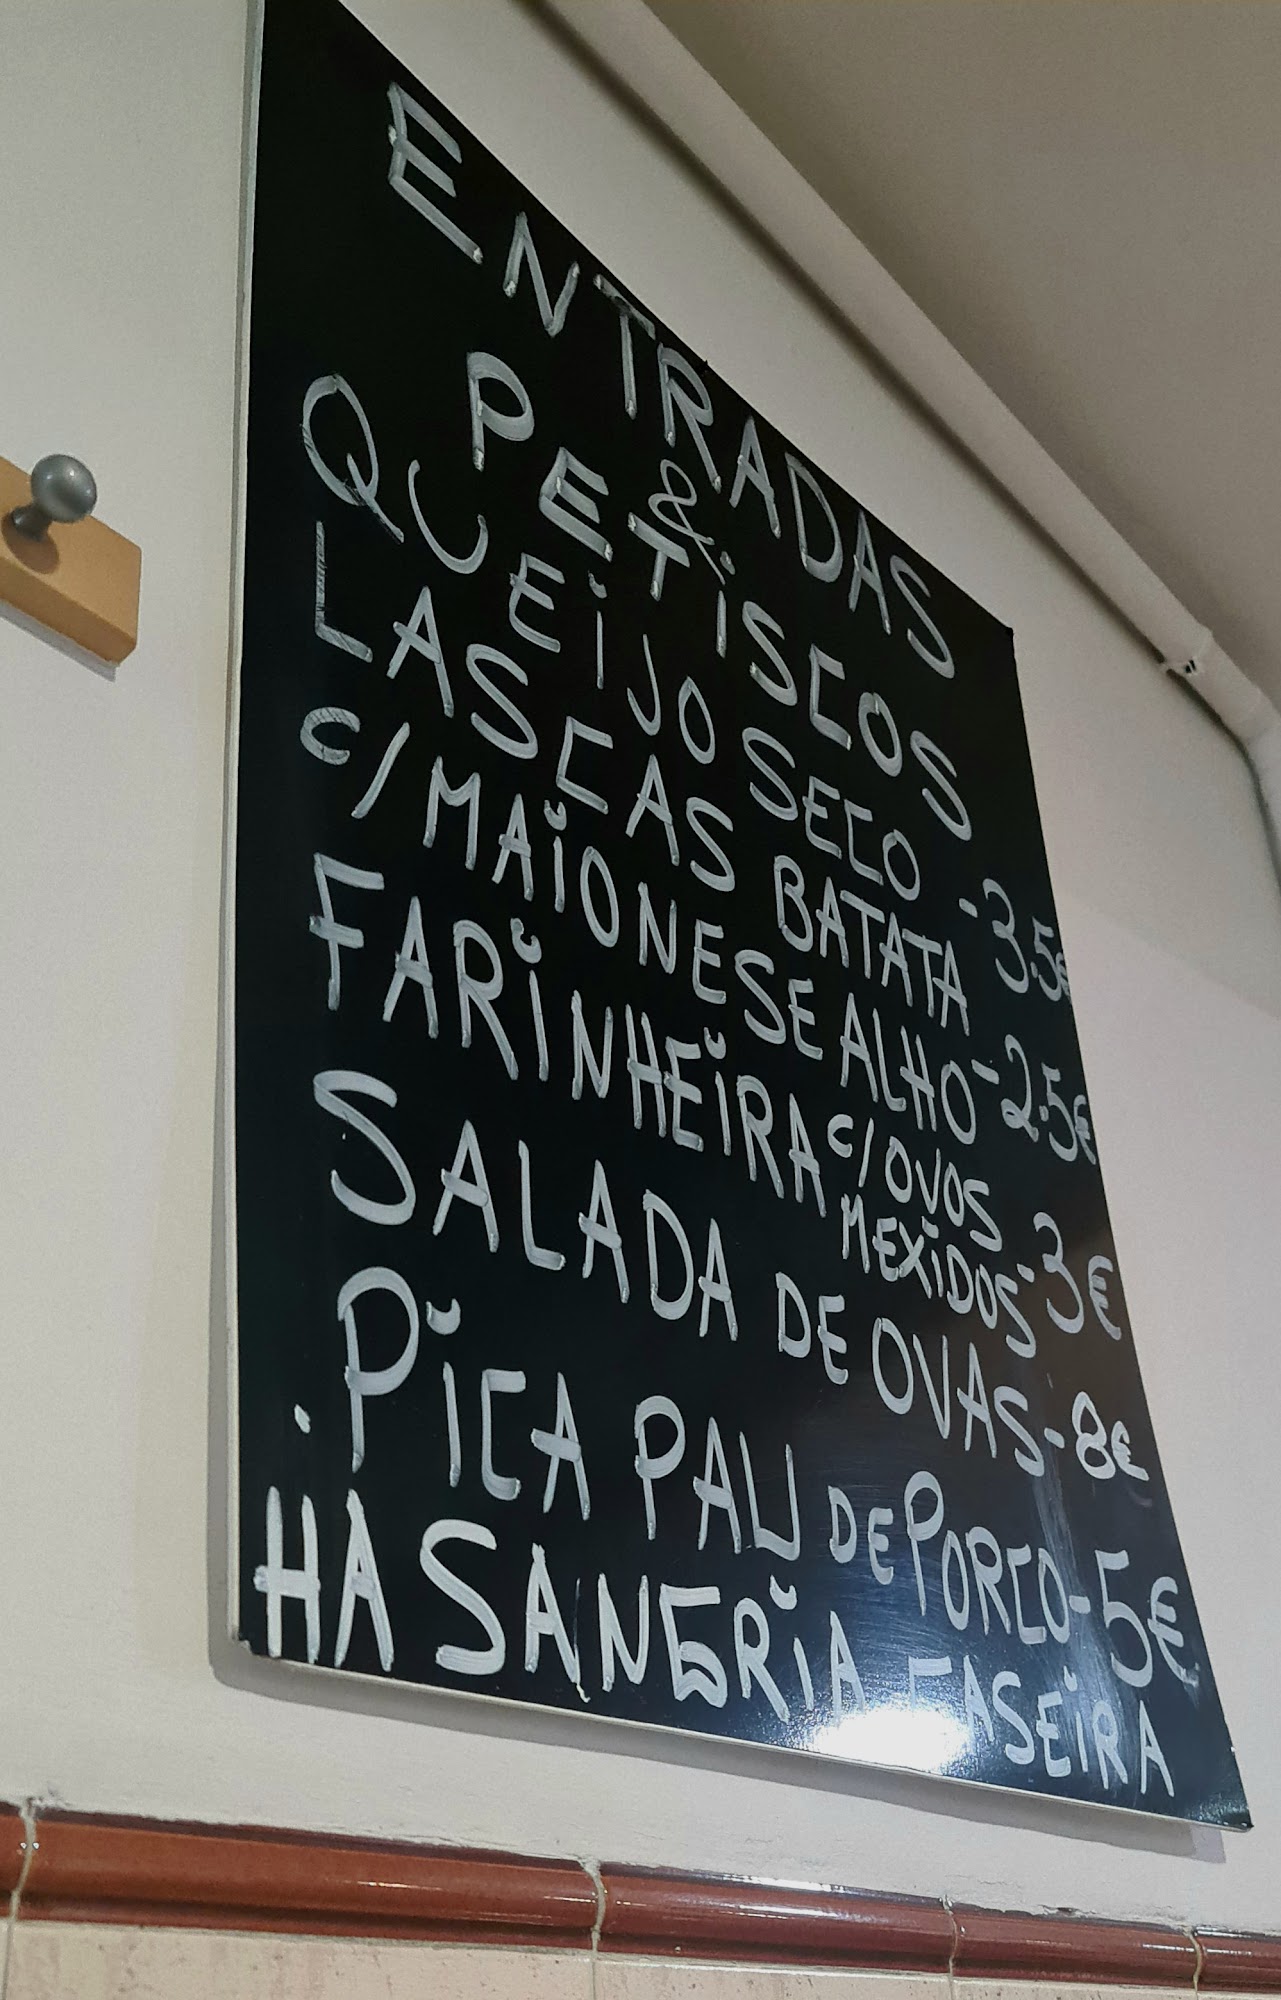 ENTRADAS
&
PETiSCOS
QUEiJO SECO - 3.5€
LASCAS BATATA
c/MAiONESE ALHO - 2.5€
FARiNHEiRA c/OVOS
MEXiDOS - 3€
SALADA DE OVAS - 8€
. PiCA PAU DE PORCO - 5€
HA SANGRiA CASEiRA